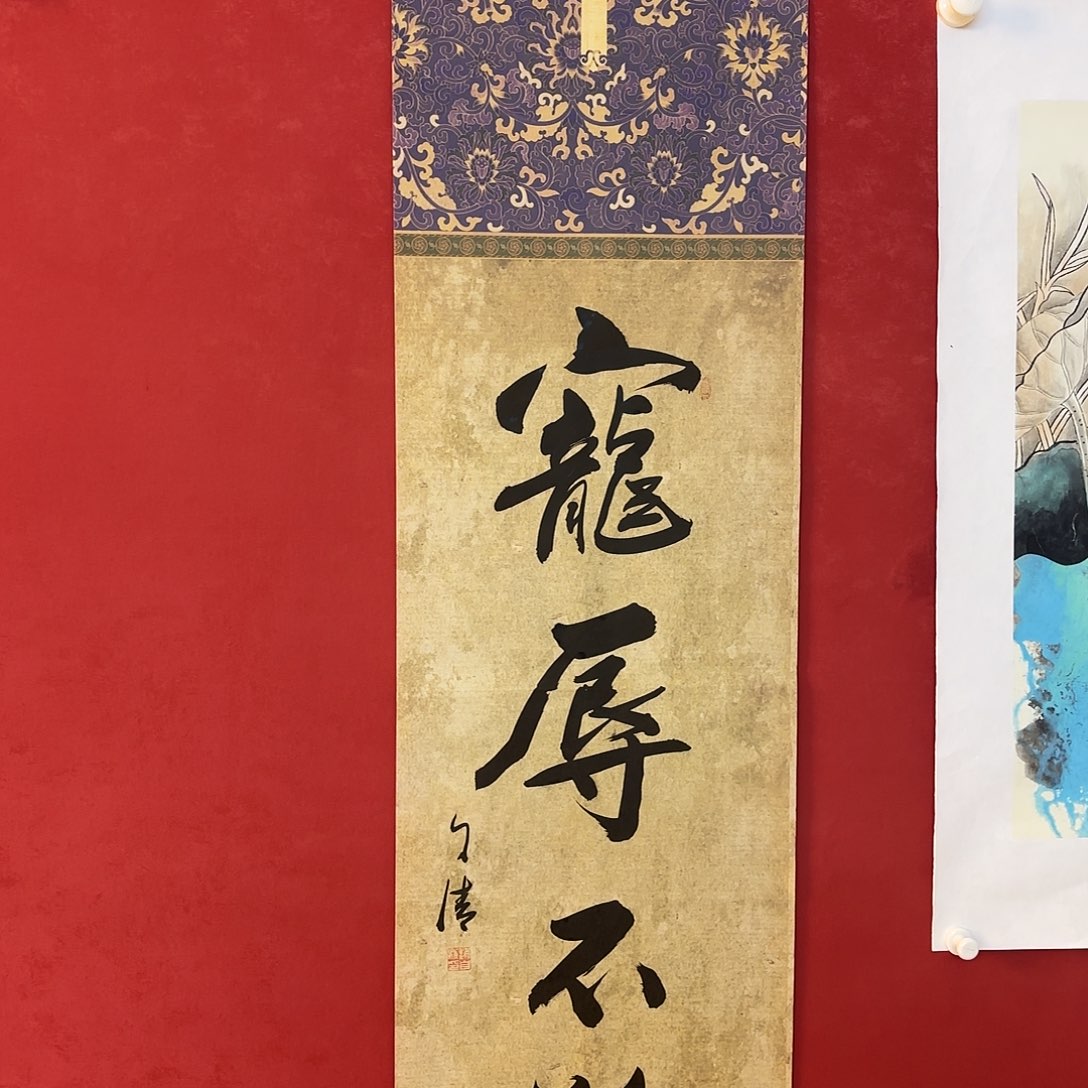 寵辱不
文清